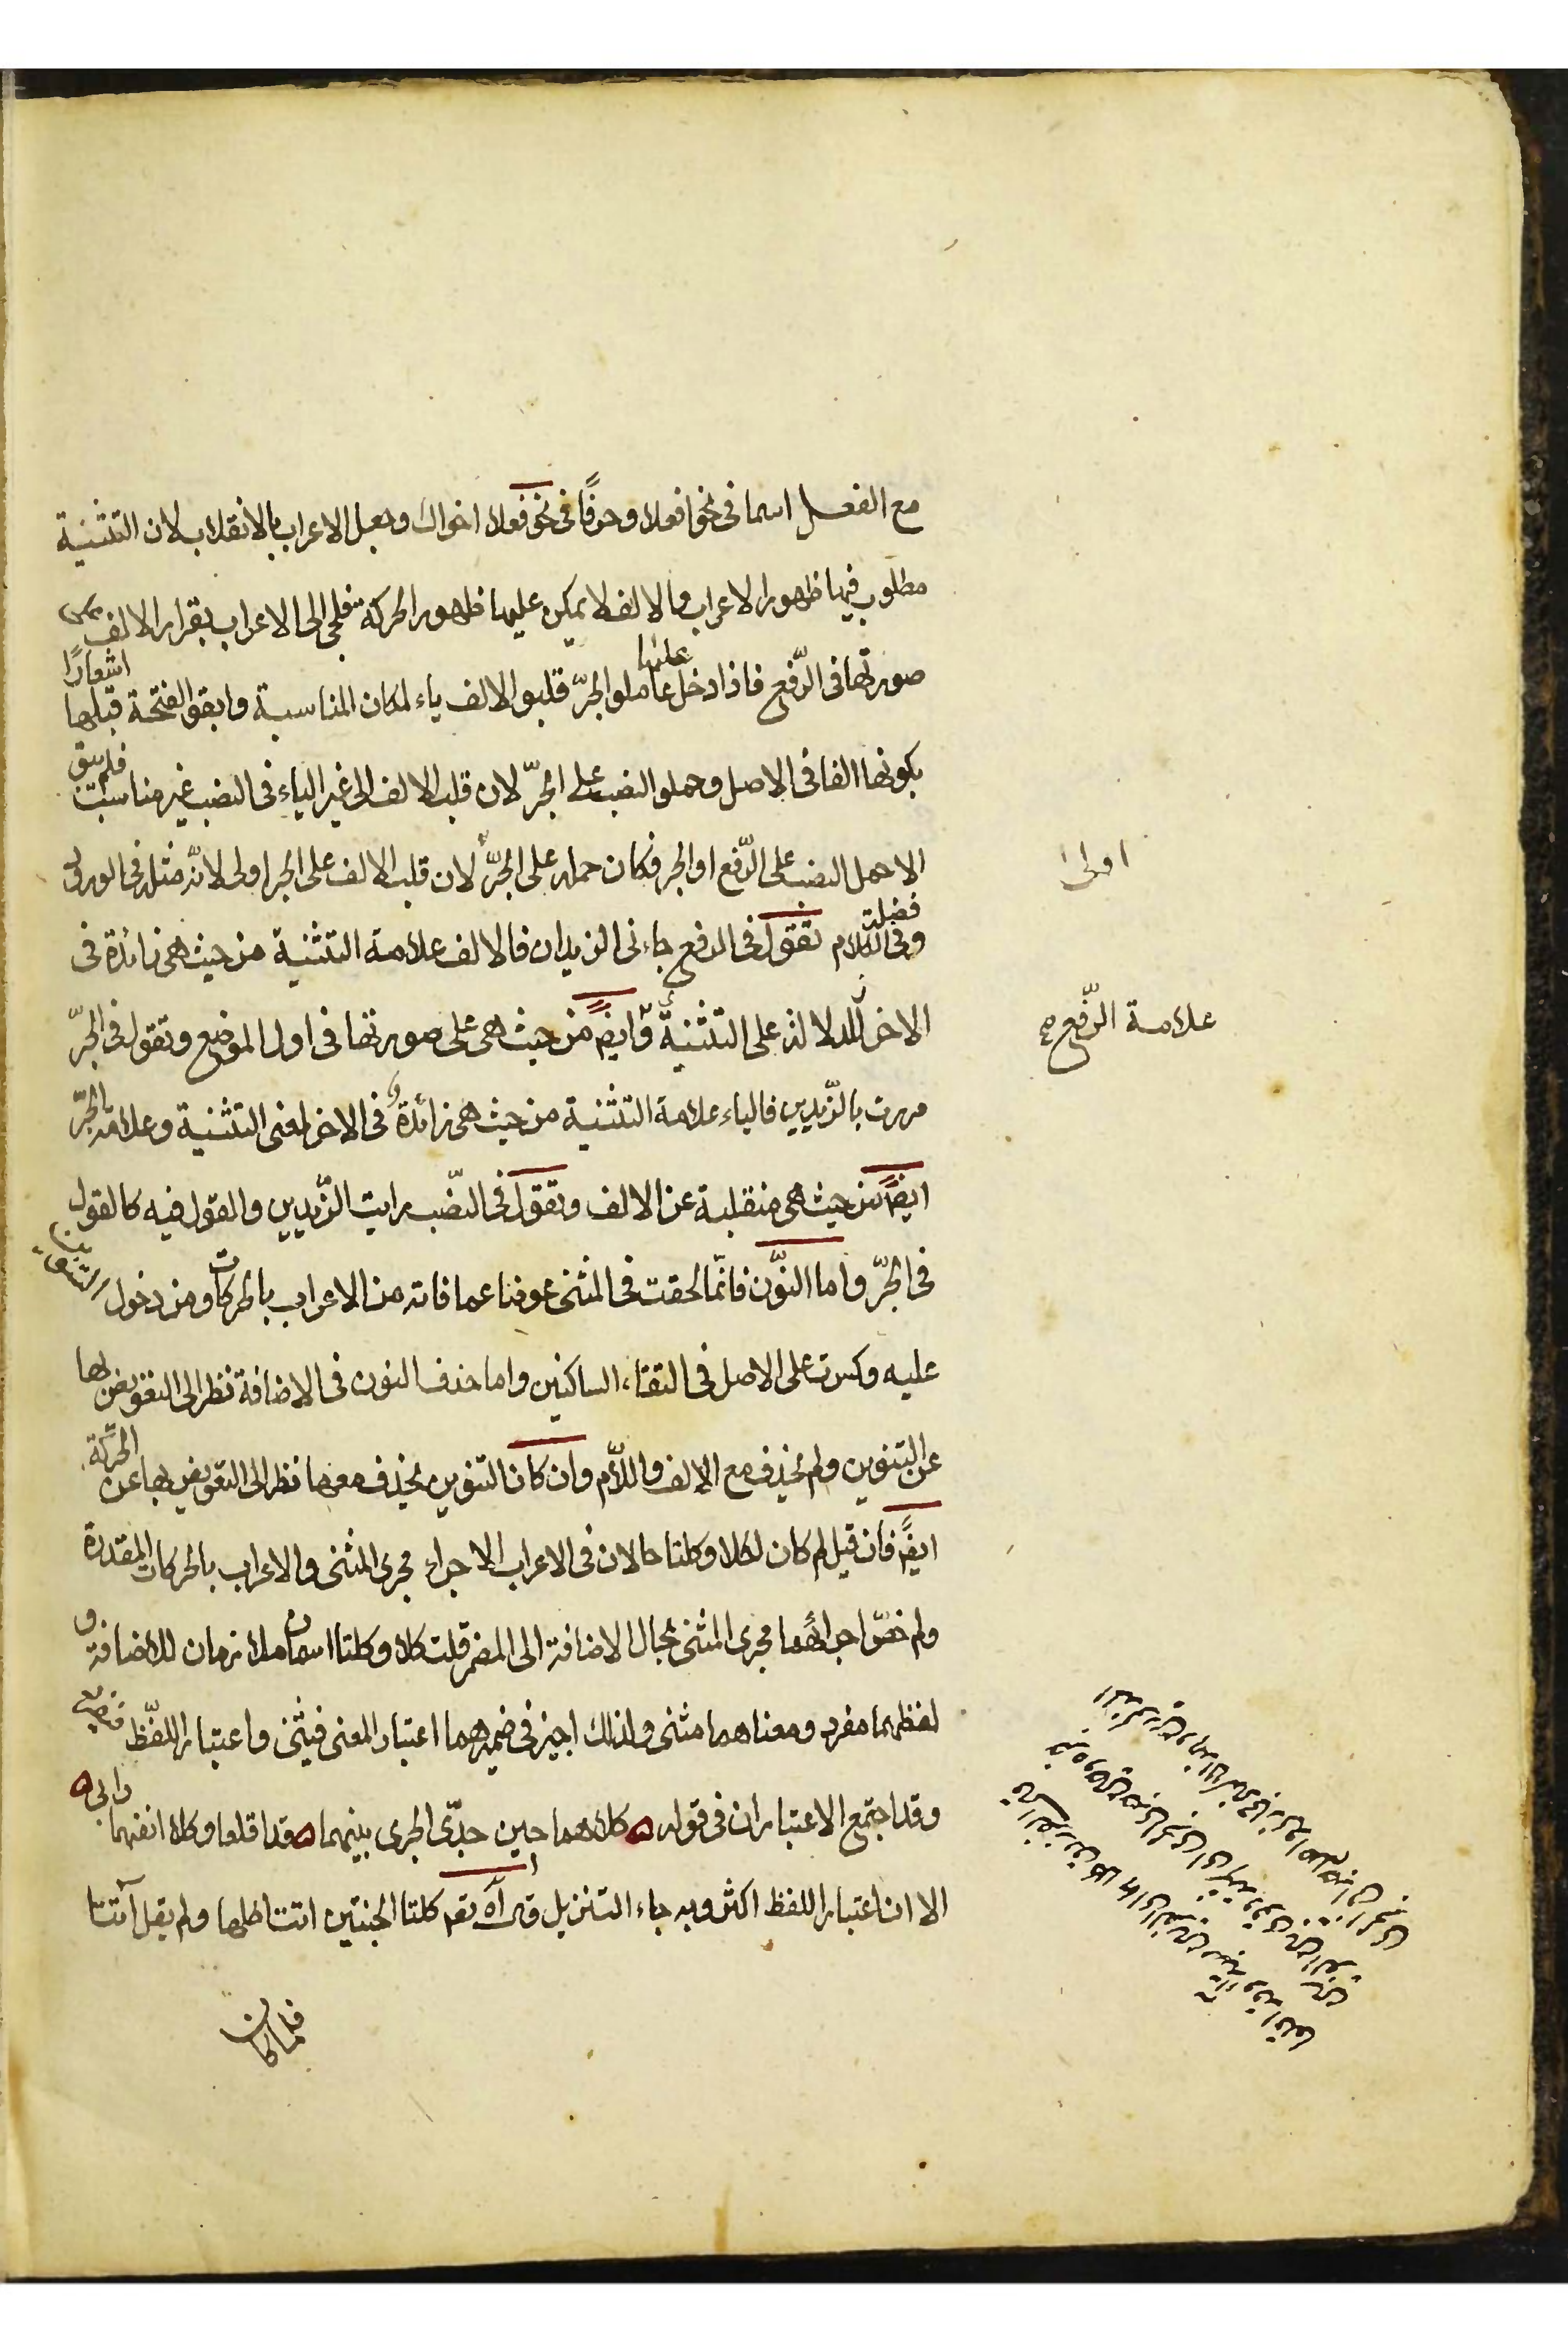 مع الفعل اسما فى نحو افعلا وحرفًا فى نحو فعلا اخواك وجعل الاعراب بالانقلاب لان التثنية
مطلوب فيها ظهور الاعراب والالف لا يمكن عليها ظهور الحركة فلجئ الى الاعراب بقرار الالف على
صورتها فى الرّفع فاذا دخل عليها عامل الجرّ قلبوا الالف ياء لمكان المناسبة وابقوا الفتحة قبلها اشعارًا
بكونها الفا فى الاصل وحملوا النصب على الجرّ لان قلب الالف الى غير الياء فى النصب غير مناسبة فلم يبق
الا حمل النصب على الرّفع او الجر فكان حمله على الجرّ لان قلب الالف على الجر اولى لانّه مثله فى الورود
اولى
فضلة وفى الكلام تقول فى الرفع جاءنى الزيدان فالالف علامة التثنية من حيث هى زائدة فى
الاخر للدلالة على التثنية وايضًا من حيث هى على صورتها فى اول الموضع وتقول فى الجرّ
علامة الرّفع
مررت بالزّيدين فالياء علامة التثنية من حيث هى زائدة فى الاخر لمعنى التثنية وعلامة الجرّ
ايضًا من حيث هى منقلبة عن الالف وتقول فى النصّب رايت الزّيدين والقول فيه كالقول
فى الجرّ واما النوّن فانّما لحقت فى المثنى عوضا عما فاته من الاعراب بالحركات ومن دخول التنوين
عليه وكسرت على الاصل فى التقاء الساكنين واما حذف النون فى الاضافة نظر الى التعويض بها
عن التنوين ولم يحذف مع الالف واللاّم وان كان التنوين يحذف معهما نظر الى التعويض بها عن الحركة
ايضًا فان قيل لم كان لكلا وكلتا حالان فى الاعراب الاجراء مجرى المثنى والاعراب بالحركات المقدرة
ولم خصّ اجراؤهما مجرى المثنى بحال الاضافة الى المضمر قلت كلا وكلتا اسمان ملازمان للاضافة و
لفظهما مفرد ومعناهما مثنى ولذلك اجيز فى ضميرهما اعتبار المعنى فيثنى واعتبار اللفّظ فيفرد
وقد اجتمع الاعتباران فى قوله ه كلاهما حين جدّ الجرى بينهما ه قد اقلعا وكلا انفيهما رابى ه
الا ان اعتبار اللفظ اكثر وبه جاء التنزيل قال الله تعم كلتا الجنتين اتت اكلها ولم يقل آتتا
فلما كان